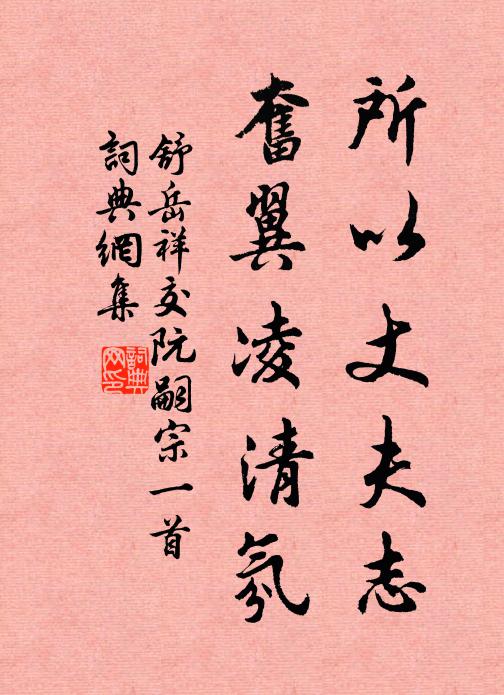 所以丈夫志
奮翼凌清氛
舒岳祥交阮嗣宗一首
詞典網集
詞典網印